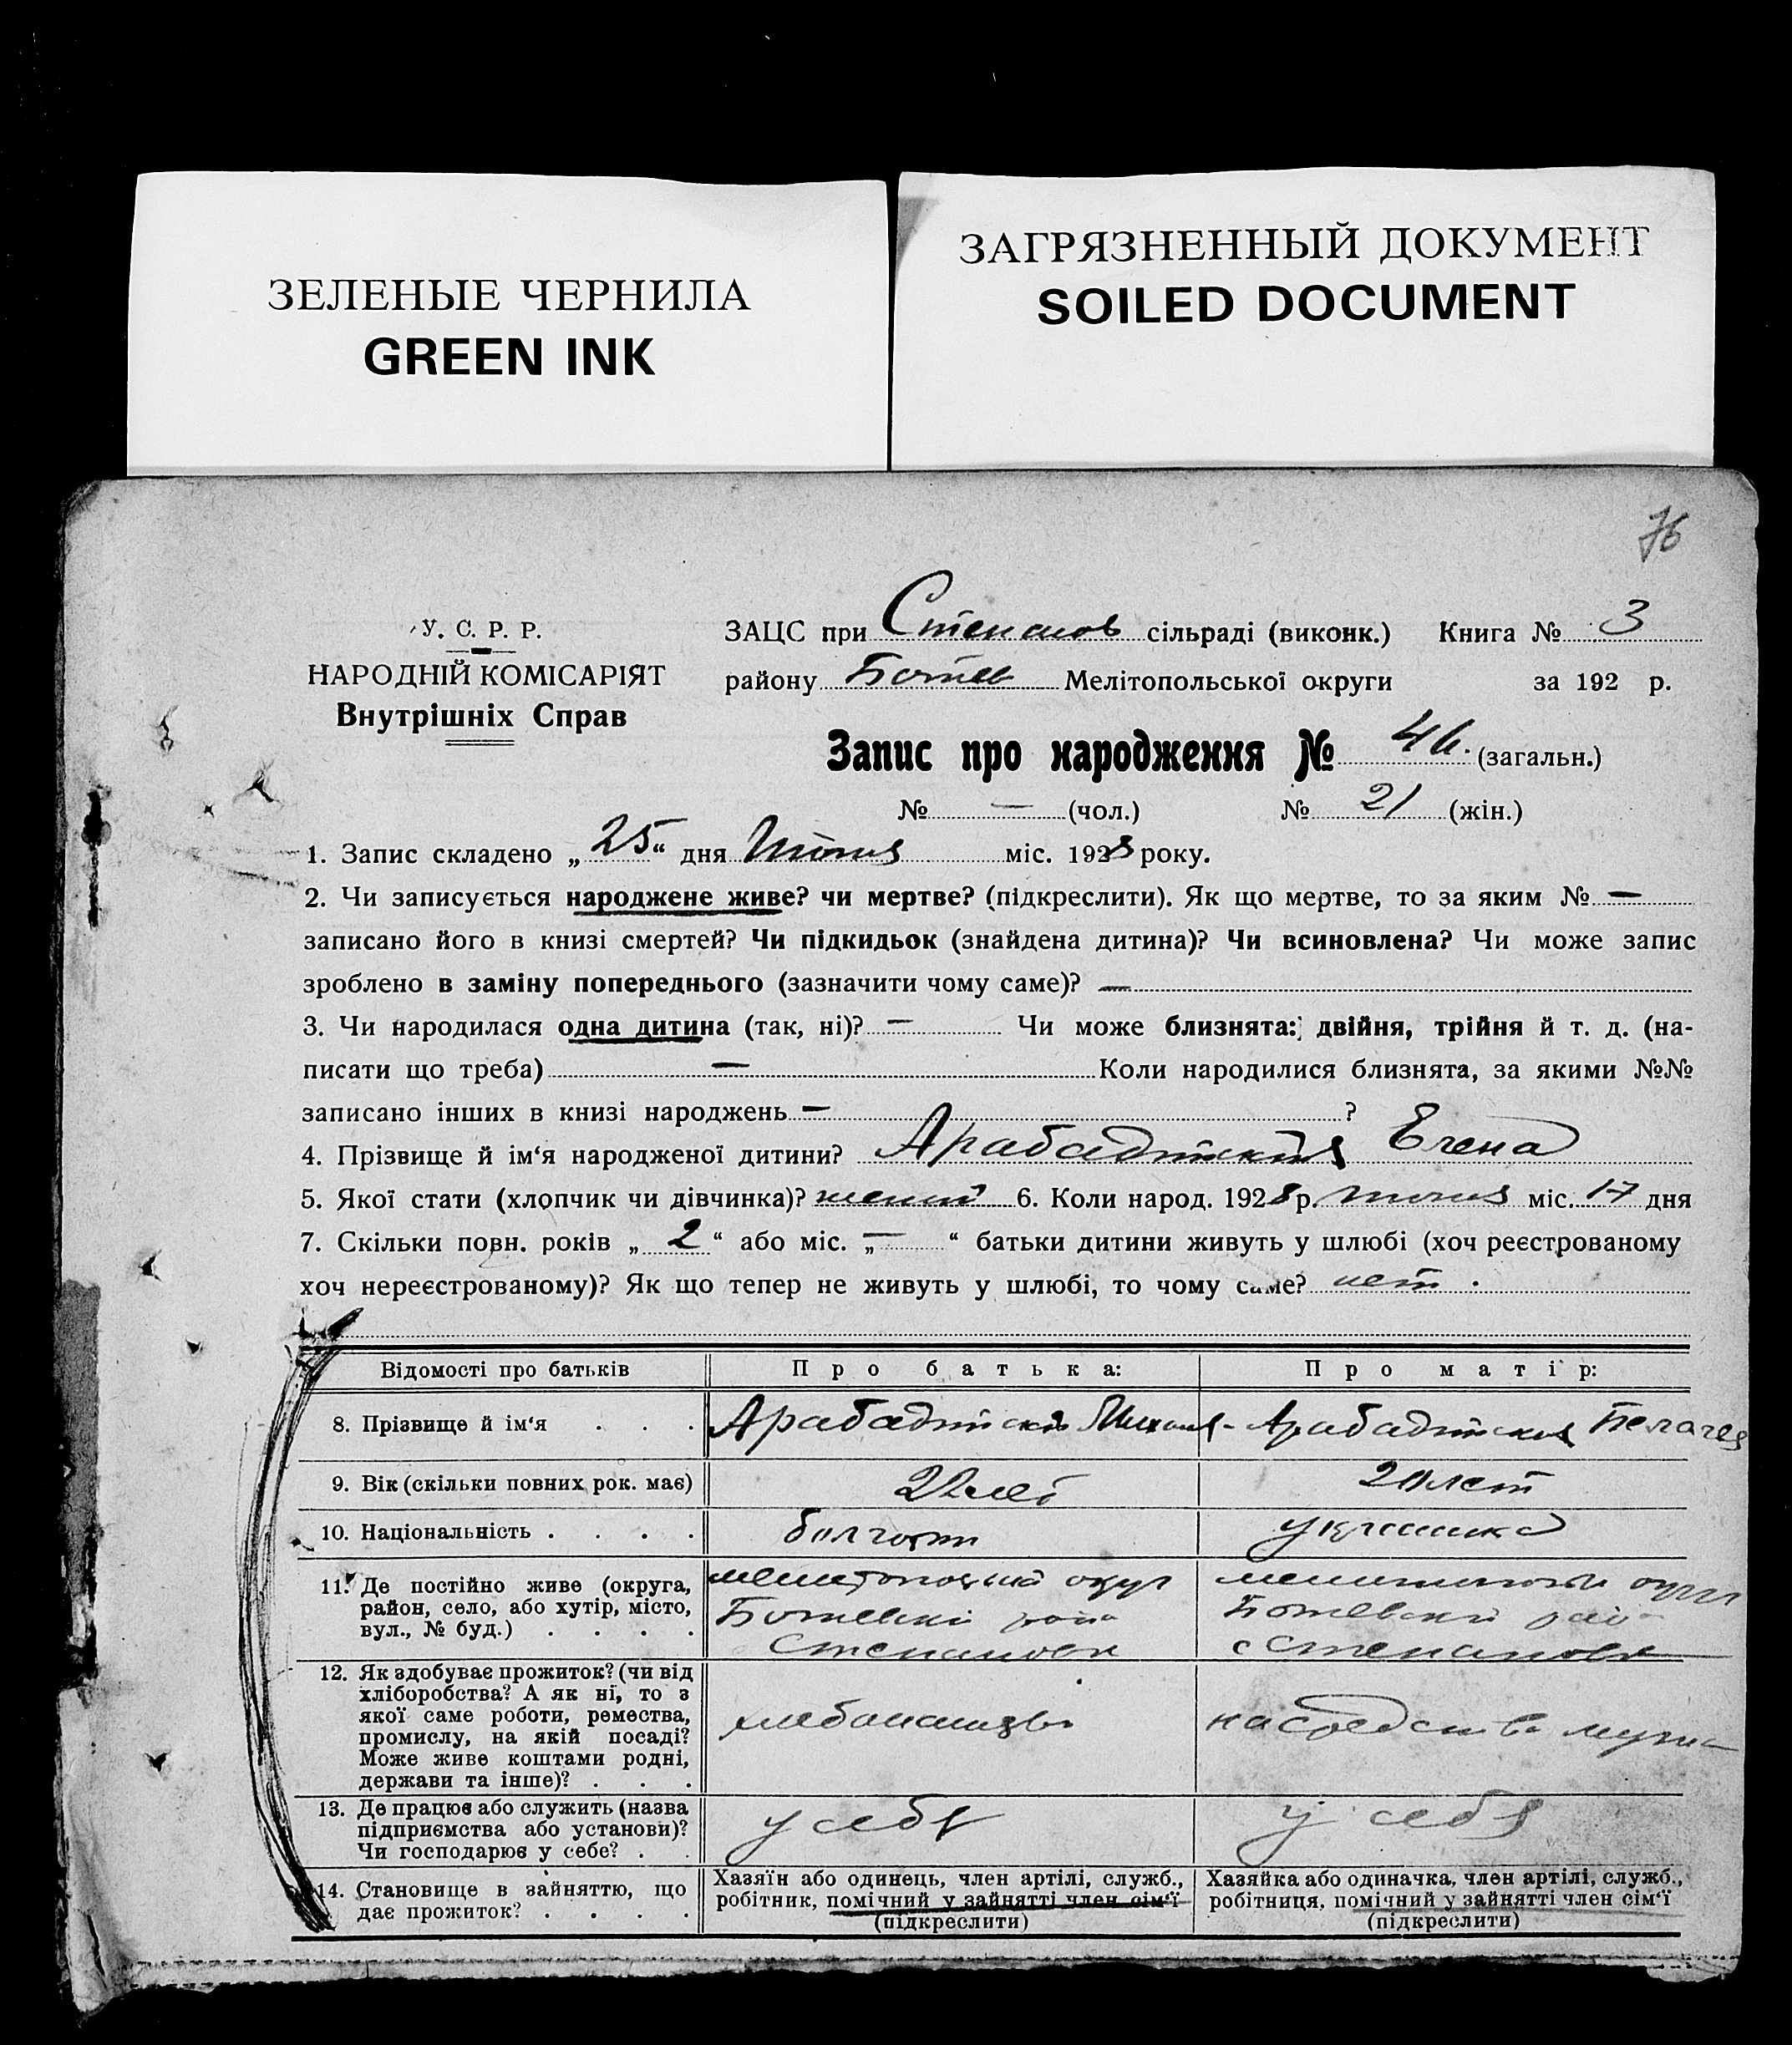 ЗЕЛЕНЫЕ ЧЕРНИЛА
GREEN INK
ЗАГРЯЗНЕННЫЙ ДОКУМЕНТ
SOILED DOCUMENT
76
У. С. Р. Р.
НАРОДНІЙ КОМІСАРІЯТ
Внутрішніх Справ
ЗАЦС при Степанов сільраді (виконк.) Книга № 3
району Ботев Мелітопольської округи за 192 р.
Запис про народження № 46. (загальн.)
№ — (чол.) № 21 (жін.)
1. Запис складено „ 25 “ дня Июня міс. 1928 року.
2. Чи записується народжене живе? чи мертве? (підкреслити). Як що мертве, то за яким № —
записано його в книзі смертей? Чи підкидьок (знайдена дитина)? Чи всиновлена? Чи може запис
зроблено в заміну попереднього (зазначити чому саме)? —
3. Чи народилася одна дитина (так, ні)? — Чи може близнята: двійня, трійня й т. д. (на-
писати що треба) — Коли народилися близнята, за якими №№
записано інших в книзі народжень — ?
4. Прізвище й ім‘я народженої дитини? Елена
5. Якої стати (хлопчик чи дівчинка)? 6. Коли народ. 1928 р. июня міс. 17 дня
7. Скільки повн. років „ 2 “ або міс. „ — “ батьки дитини живуть у шлюбі (хоч реєстрованому
хоч нереєстрованому)? Як що тепер не живуть у шлюбі, то чому саме? нет .
Відомості про батьків Про батька: Про матір:
8. Прізвище й ім‘я . . . Михаил
9. Вік (скільки повних рок. має) 22 лет лет
10. Національність . . . . украинка
11. Де постійно живе (округа,
район, село, або хутір, місто,
вул., № буд.) . . . .
округ
Ботевский района
Степановка
Ботевский
с Степановка
12. Як здобуває прожиток? (чи від
хліборобства? А як ні, то з
якої саме роботи, ремества,
промислу, на якій посаді?
Може живе коштами родні,
держави та інше)? . . .
на средства мужа
13. Де працює або служить (назва
підприємства або установи)?
Чи господарює у себе? . .
у себя
у себя
14. Становище в зайняттю, що
дає прожиток? . . . .
Хазяїн або одинець, член артілі, служб.,
робітник, помічний у зайнятті член сім‘ї
(підкреслити)
Хазяйка або одиначка, член артілі, служб.,
робітниця, помічний у зайнятті член сім‘ї
(підкреслити)